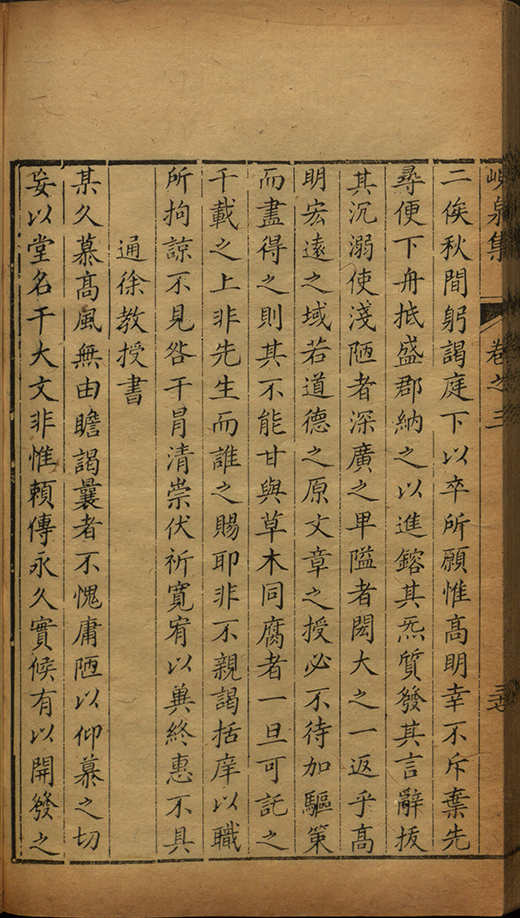 峴泉集 卷之三
二俟秋間躬謁庭下以卒所願惟高明幸不斥棄先
尋便下舟抵盛郡納之以進鎔其炁質發其言辭拔
其沉溺使淺陋者深廣之卑隘者閎大之一返乎髙
明宏遠之域若道德之原文章之授必不待加驅策
而盡得之則其不能甘與草木同腐者一旦可託之
千載之上非先生而誰之賜耶非不親謁括庠以職
所拘諒不見咎干冐清崇伏祈寬宥以兾終惠不具
通徐教授書
某久慕髙風無由瞻謁曩者不愧庸陋以仰慕之切
妄以堂名干大文非惟頼傳永久實候有以開發之